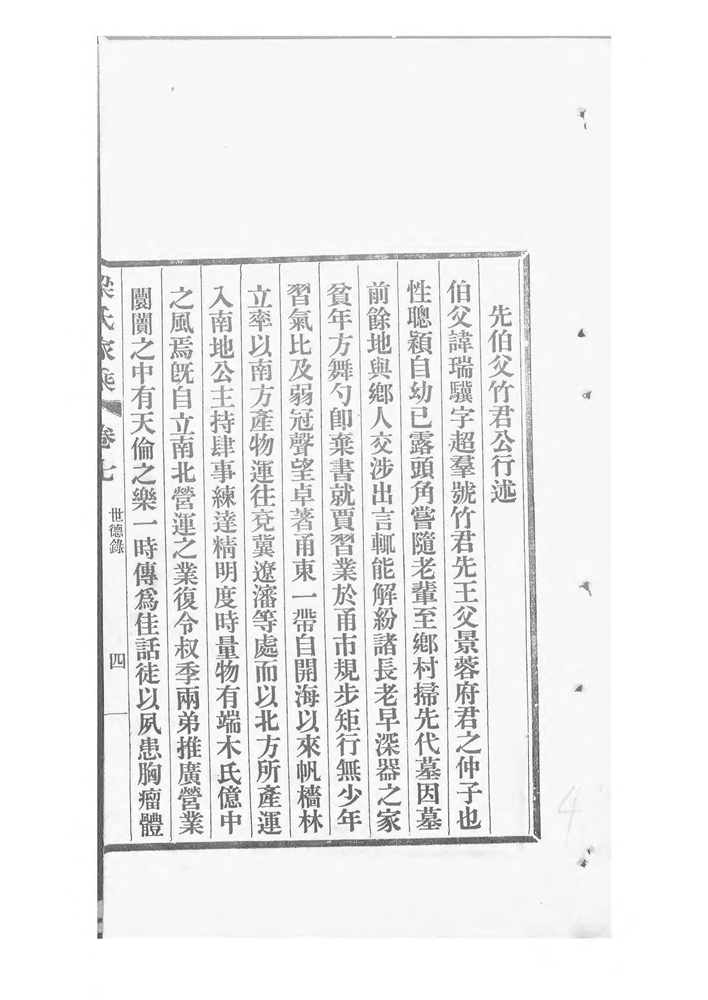 先伯父竹君公行述
伯父諱瑞驥字超羣號竹君先王父景蓉府君之仲子也
性聰穎自幼已露頭角嘗隨老輩至鄉村掃先代墓因墓
前餘地與鄉人交涉出言輒能解紛諸長老早深器之家
貧年方舞勺卽棄書就賈習業於甬市規步矩行無少年
習氣比及弱冠聲望卓著甬東一帶自開海以來帆檣林
立率以南方產物運往兗冀遼瀋等處而以北方所產運
入南地公主持肆事練達精明度時量物有端木氏億中
之風焉旣自立南北營運之業復令叔季兩弟推廣營業
闤闠之中有天倫之樂一時傳爲佳話徒以夙患胸瘤體
梁氏家乘 卷七 世德錄 四
4